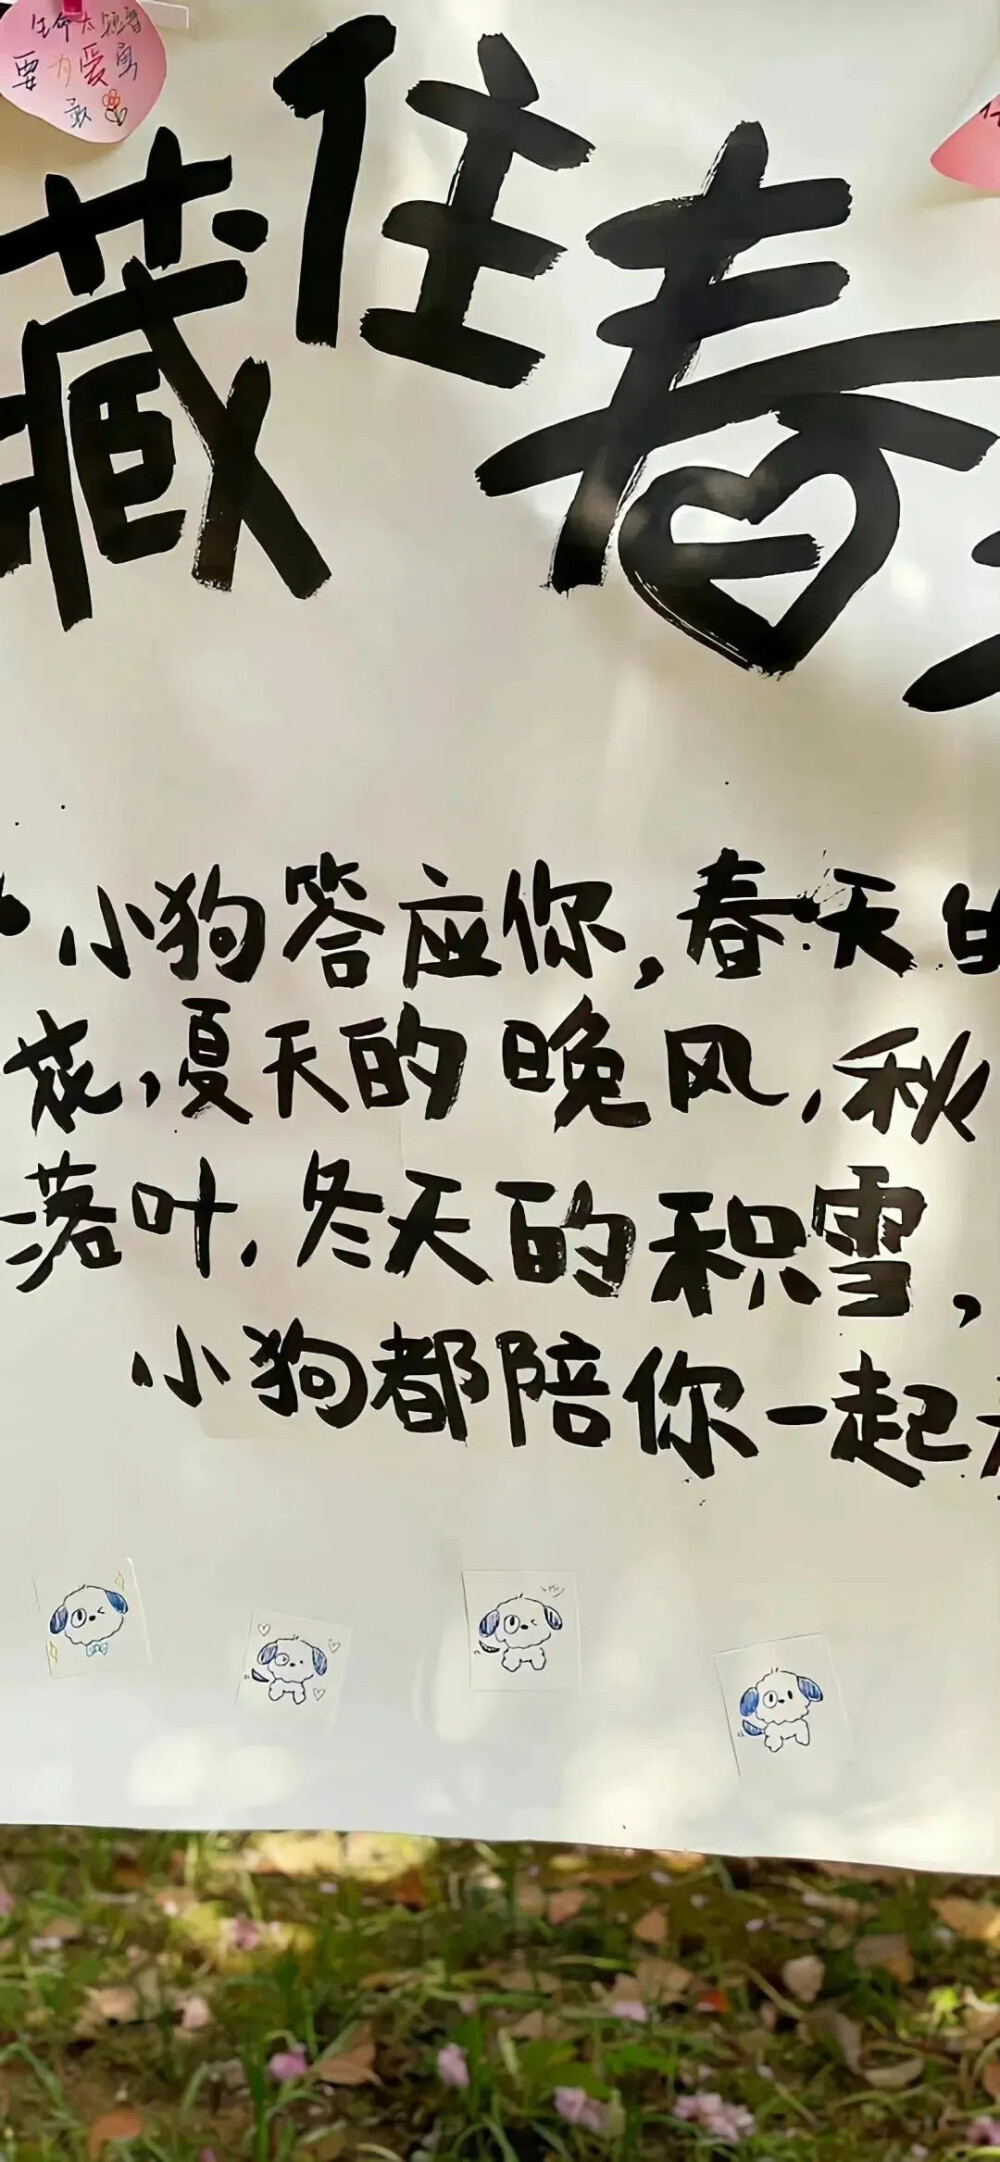 生命太短暂
要为爱勇
敢
藏住春
小狗答应你,春天的
花,夏天的晚风,秋
落叶,冬天的积雪,
小狗都陪你一起